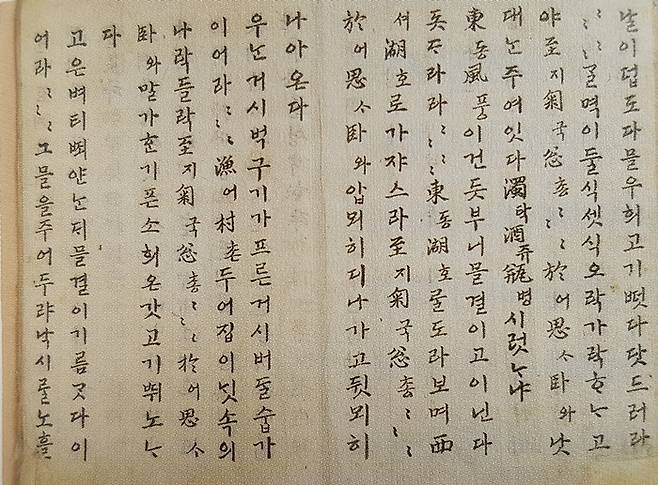 날이덥도다믈우희고기ᄠᅥᆺ다닫드러라
〻〻ᄀᆞᆯ며기둘식셋식오락가락ᄒᆞᄂᆞ고
야至지匊국悤총〻〻於어思ᄉᆞ臥와낫
대ᄂᆞᆫ주여잇다濁탁酒쥬甁병시럿ᄂᆞ냐
東동風풍이건ᄃᆞᆺ부니믈결이고이닌다
돋ᄃᆞ라라〻〻東동湖호ᄅᆞᆯ도라보며西
셔湖호로가쟈스라至지匊국悤총〻〻
於어思ᄉᆞ臥와압뫼히디나가고뒷뫼히
나아온다
우ᄂᆞᆫ거시벅구기가프른거시버들숩가
이어라〻〻漁어村촌두어집이ᄂᆡᆺ속의
나락들락至지匊국悤총〻〻於어思ᄉᆞ
臥와말가ᄒᆞᆫ기픈소희온갓고기ᄠᅱ노ᄂᆞ
다
고은벼티ᄧᅬ얀ᄂᆞᆫᄃᆡ믈결이기름ᄀᆞᆺ다이
어라〻〻그믈을주어두랴낙시ᄅᆞᆯ노흘